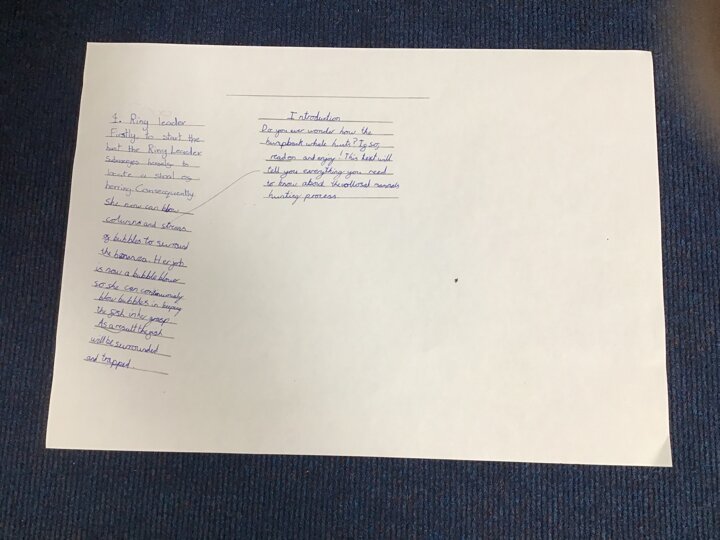 Introduction
Do you ever wonder how the
humpback whale hunts? If so,
read on and enjoy! This text will
tell you everything you need
to know about the collosal mamals
hunting process.
1. Ring leader
Firstly, to start the
hunt the Ring Leader
Submerges herself to
locate a shoal of
herring. Consequently
She now can blow
columns and streams
of bubbles to surround
the Her job
is now a bubble blower
so she can continuously
blow bubbles in keeping
the fish in her grasp
As a result the fish
will be surrounded
and trapped.